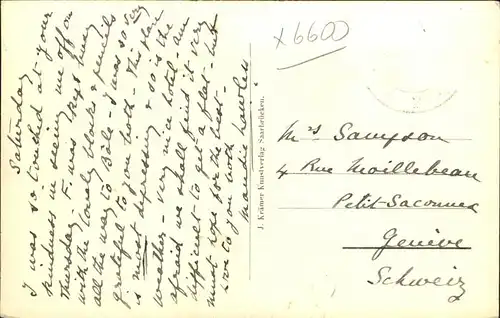 Saturday
I was so touched at your
kindness in seeing me off on
Thursday, F. was kept busy
with the lovely blocks & pencils
all the way to Bâle - I was so very
grateful to you both - This place
is most depressing & so is the
weather - very nice hotel - am
afraid we shall find it very
difficult to get a flat - but
must hope for the best -
Love to you both
Maudie
J. Krämer Kunstverlag Saarbrücken.
x6600
Mrs Sampson
4 Rue Moillebeau
Petit-Saconnex
Genève
Schweiz